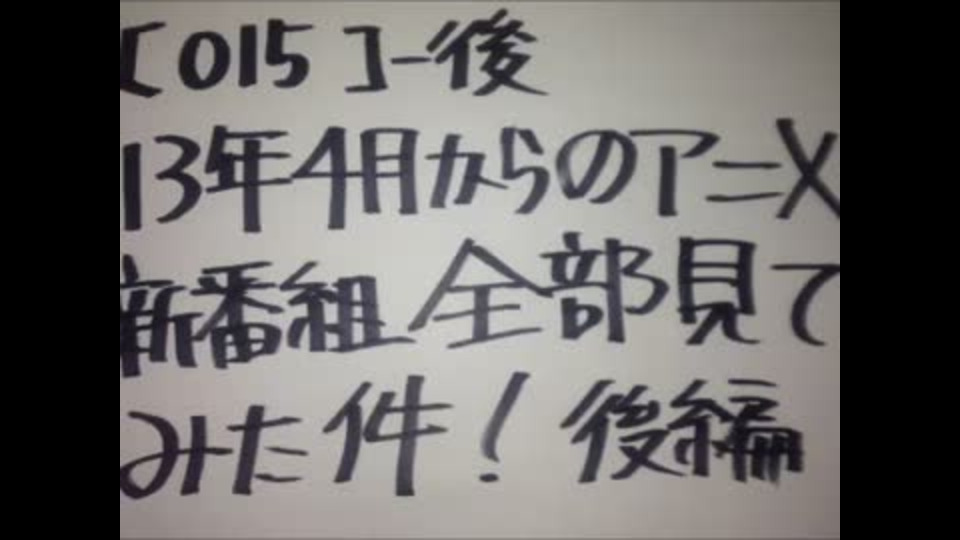 [015]-後
13年4月からのアニメ
新番組 全部見て
みた件! 後編